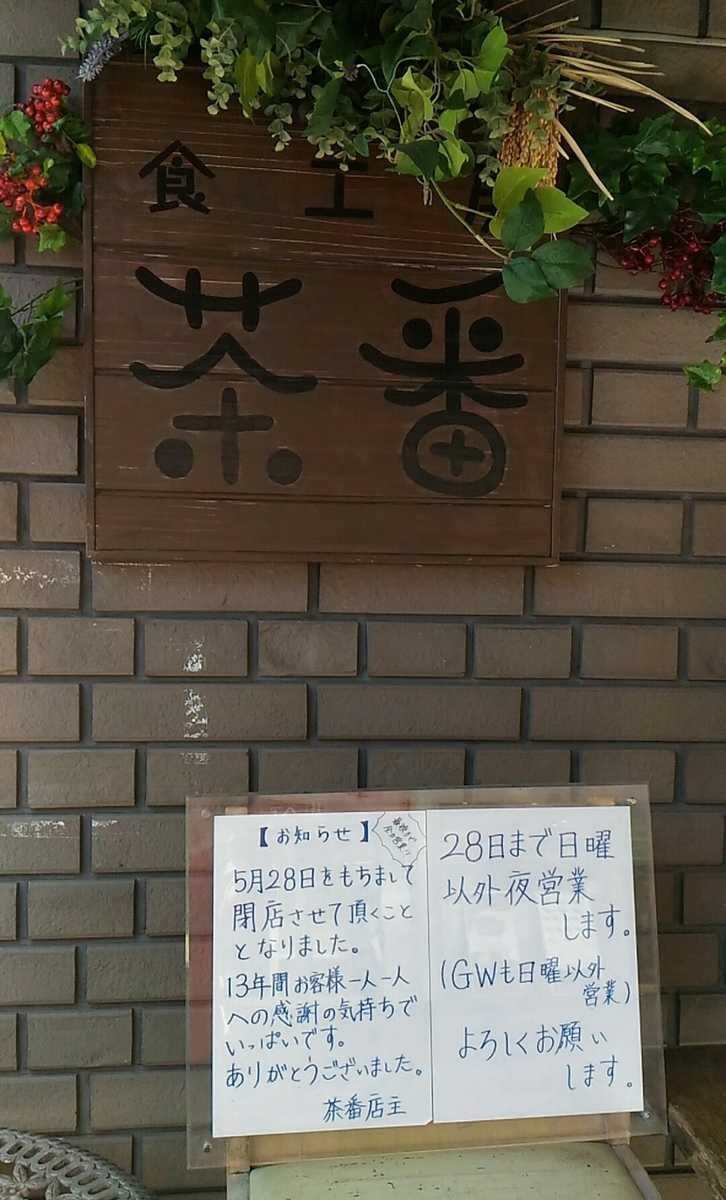 食工房
茶番
【お知らせ】
最後まで
全力営業!!
5月28日をもちまして
閉店させて頂くこと
となりました。
13年間お客様一人一人
への感謝の気持ちで
いっぱいです。
ありがとうございました。
茶番店主
28日まで日曜
以外夜営業
します。
(GWも日曜以外
営業)
よろしくお願い
します。